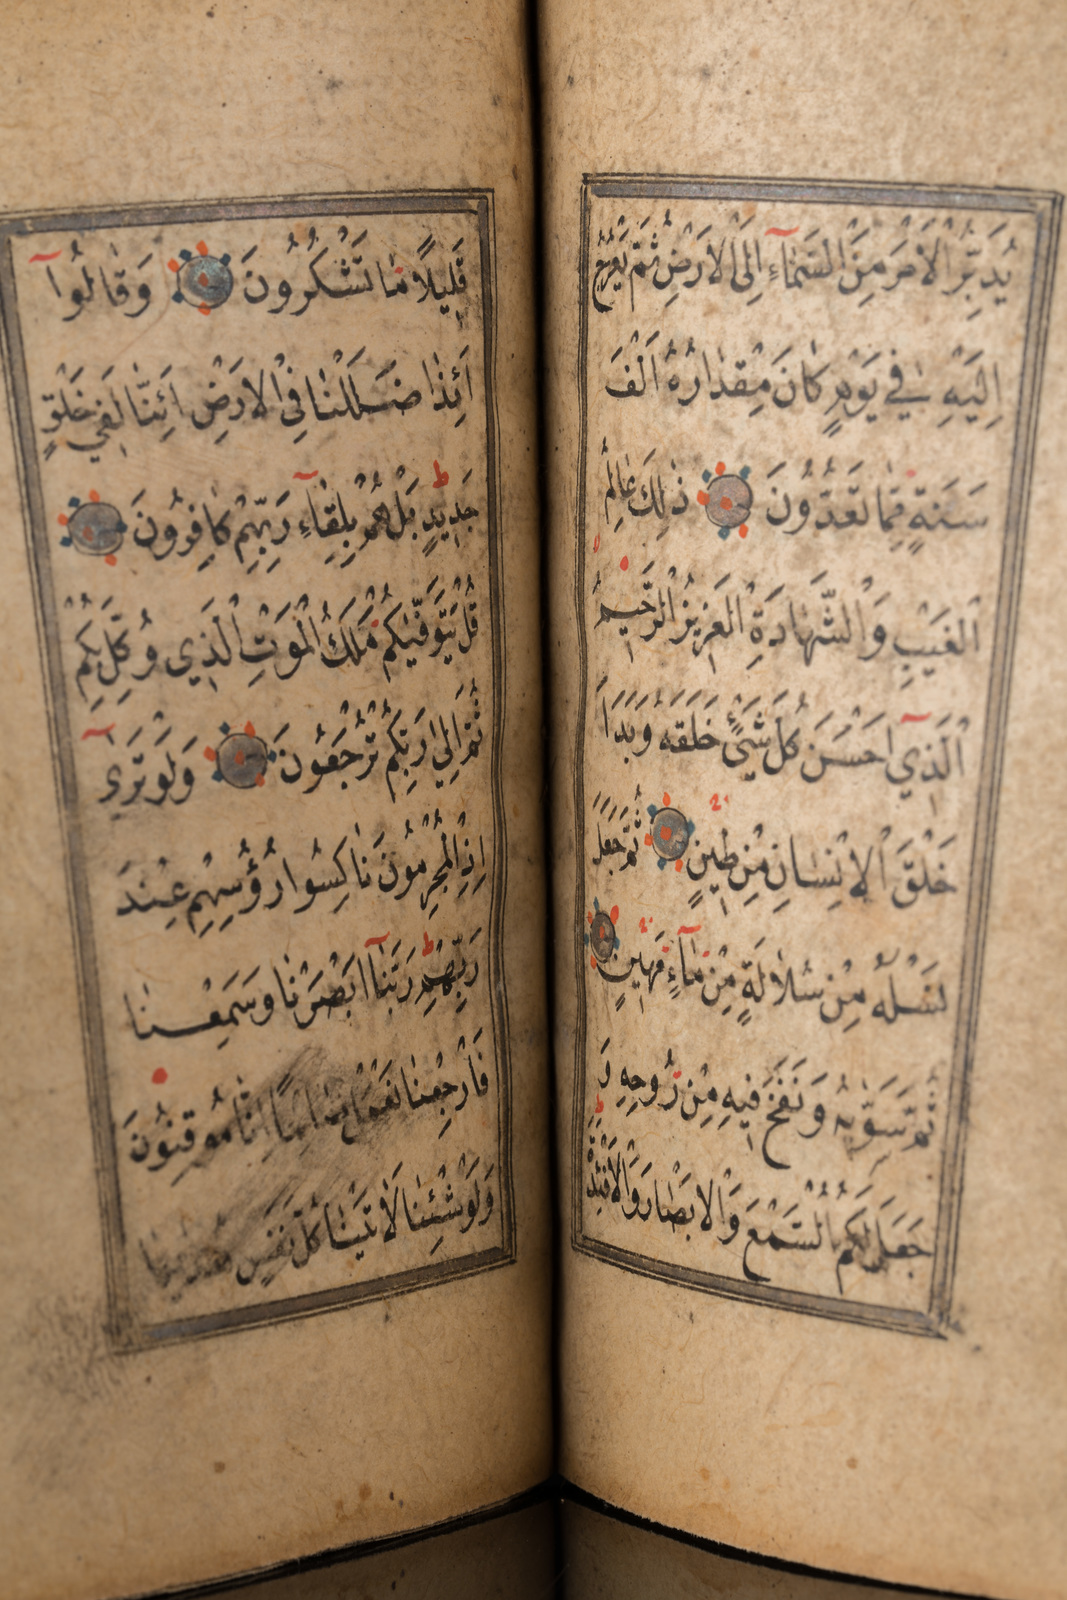 يُدَبِّرُ الْاَمْرَ مِنَ السَّمَآءِ اِلَى الْاَرْضِ ثُمَّ يَعْرُجُ
اِلَيْهِ فِي يَوْمٍ كَانَ مِقْدَارُهُ اَلْفَ
سَنَةٍ مِمَّا تَعُدُّونَ ذٰلِكَ عَالِمُ
الْغَيْبِ وَالشَّهَادَةِ الْعَزِيزُ الرَّحِيمُ
اَلَّذِي اَحْسَنَ كُلَّ شَيْءٍ خَلَقَهُ وَبَدَاَ
خَلْقَ الْاِنْسَانِ مِنْ طِينٍ ثُمَّ جَعَلَ
نَسْلَهُ مِنْ سُلَالَةٍ مِنْ مَآءٍ مَهِينٍ
ثُمَّ سَوّٰيهُ وَنَفَخَ فِيهِ مِنْ رُوحِهِ وَ
جَعَلَ لَكُمُ السَّمْعَ وَالْاَبْصَارَ وَالْاَفْئِدَةَ
قَلِيلًا مَا تَشْكُرُونَ وَقَالُوآ
اَئِذَا ضَلَلْنَا فِي الْاَرْضِ اَئِنَّا لَفِي خَلْقٍ
جَدِيدٍ بَلْ هُمْ بِلِقَآءِ رَبِّهِمْ كَافِرُونَ
قُلْ يَتَوَفّٰيكُمْ مَلَكُ الْمَوْتِ الَّذِي وُكِّلَ بِكُمْ
ثُمَّ اِلٰى رَبِّكُمْ تُرْجَعُونَ وَلَوْ تَرٰى
اِذِ الْمُجْرِمُونَ نَاكِسُوا رُؤُسِهِمْ عِنْدَ
رَبِّهِمْ رَبَّنَآ اَبْصَرْنَا وَسَمِعْنَا
فَارْجِعْنَا نَعْمَلْ صَالِحًا اِنَّا مُوقِنُونَ
وَلَوْ شِئْنَا لَاٰتَيْنَا كُلَّ نَفْسٍ